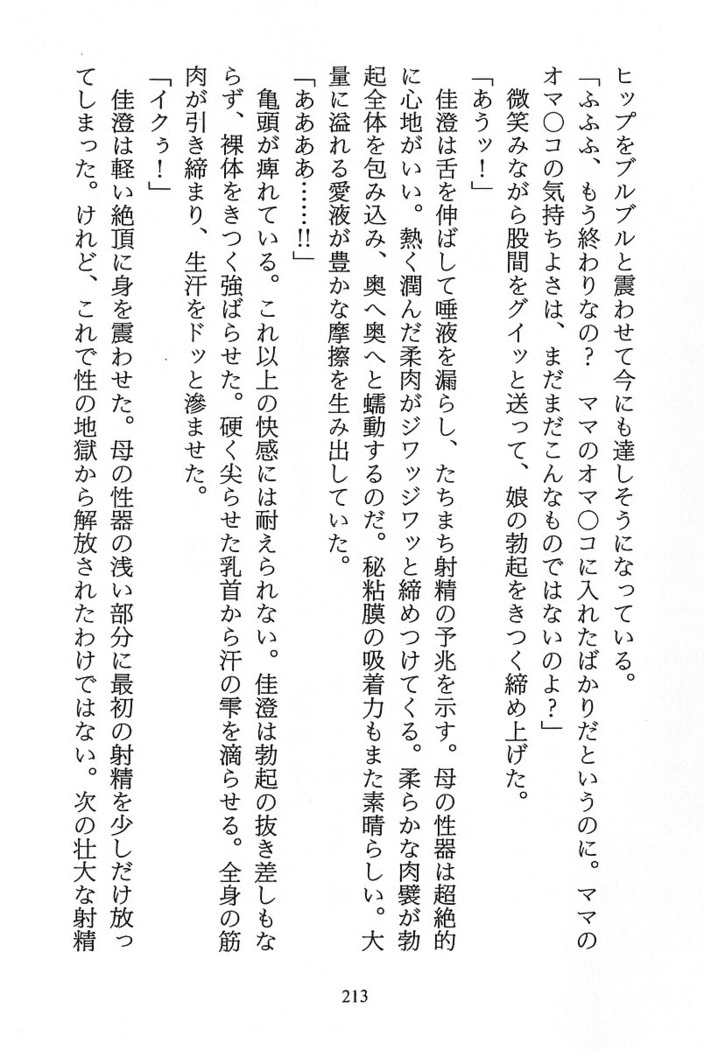 ヒップをブルブルと震わせて今にも達しそうになっている。
「ふふふ、もう終わりなの？　ママのオマ〇コに入れたばかりだというのに。ママの
オマ〇コの気持ちよさは、まだまだこんなものではないのよ？」
微笑みながら股間をグイッと送って、娘の勃起をきつく締め上げた。
「あうッ！」
佳澄は舌を伸ばして唾液を漏らし、たちまち射精の予兆を示す。母の性器は超絶的
に心地がいい。熱く潤んだ柔肉がジワッジワッと締めつけてくる。柔らかな肉襞が勃
起全体を包み込み、奥へ奥へと蠕動するのだ。秘粘膜の吸着力もまた素晴らしい。大
量に溢れる愛液が豊かな摩擦を生み出していた。
「ああああ……!!」
亀頭が痺れている。これ以上の快感には耐えられない。佳澄は勃起の抜き差しもな
らず、裸体をきつく強ばらせた。硬く尖らせた乳首から汗の雫を滴らせる。全身の筋
肉が引き締まり、生汗をドッと滲ませた。
「イクぅ！」
佳澄は軽い絶頂に身を震わせた。母の性器の浅い部分に最初の射精を少しだけ放っ
てしまった。けれど、これで性の地獄から解放されたわけではない。次の壮大な射精
213